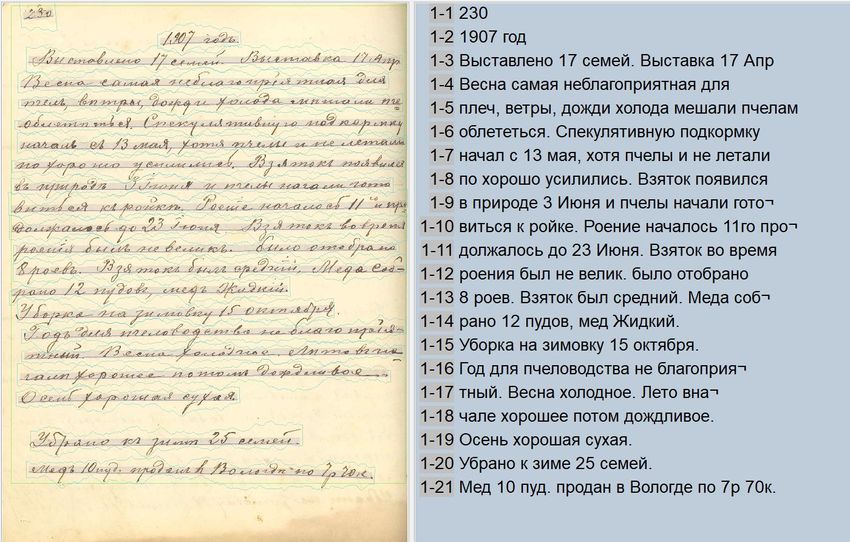 230
1907 годъ.
Выставлено 17 семей. Выставка 17 Апр
Весна самая неблагопріятная для
пчелъ, вѣтры, дожди холода мѣшали пче=
облетѣться. Спекулятивную подкормку
началъ съ 13 мая, хотя пчелы и не летали
но хорошо усилились. Взятокъ появился
въ природѣ 3 Іюня и пчелы начали гото
виться къ ройкѣ. Роеніе началось 11го про
должалось до 23 Іюня. Взятокъ во время
роенія былъ не великъ. было отобрано
8 роевъ. Взятокъ былъ средній, Меда соб-
рано 12 пудовъ, медъ Жидкій.
Уборка на зимовку 15 октября.
Годъ для пчеловодства не благопрія-
тный. Весна холодное. Лѣто вна
чалѣ хорошее потомъ дождливое.
Осень хорошая сухая.
Убрано къ зимѣ 25 семей.
Медъ 10 пуд. проданъ въ Вологдѣ по 7р 70к.
1-1 230
1-2 1907 год
1-3 Выставлено 17 семей. Выставка 17 Апр
1-4 Весна самая неблагоприятная для
1-5 плеч, ветры, дожди холода мешали пчелам
1-6 облететься. Спекулятивную подкормку
1-7 начал с 13 мая, хотя пчелы и не летали
1-8 по хорошо усилились. Взяток появился
1-9 в природе 3 Июня и пчелы начали гото¬
1-10 виться к ройке. Роение началось 11го про¬
1-11 должалось до 23 Июня. Взяток во время
1-12 роения был не велик. было отобрано
1-13 8 роев. Взяток был средний. Меда соб¬
1-14 рано 12 пудов, мед Жидкий.
1-15 Уборка на зимовку 15 октября.
1-16 Год для пчеловодства не благоприя¬
1-17 тный. Весна холодное. Лето вна¬
1-18 чале хорошее потом дождливое.
1-19 Осень хорошая сухая.
1-20 Убрано к зиме 25 семей.
1-21 Мед 10 пуд. продан в Вологде по 7р 70к.